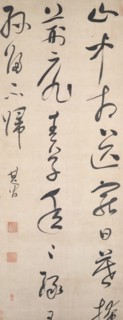 山中相送罷日暮掩
荊扉春草年年綠王
孫歸不歸
其昌